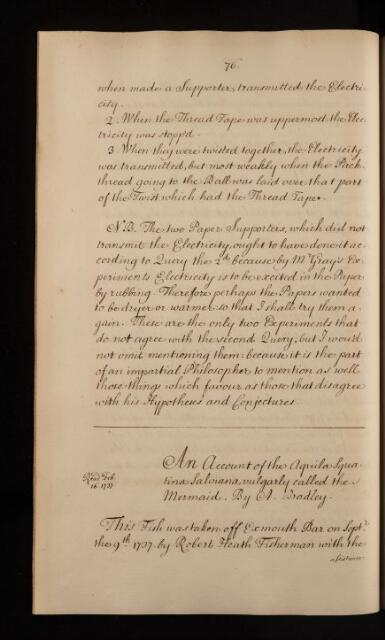 76.
when made a Supporter, transmitted the Electri-
city.
2. When the Thread Tape was uppermost the Elec-
tricity was stopp'd.
3. When they were twisted together, the Electricity
was transmitted, but most weakly when the Pack-
thread going to the Ball was laid over that part
of the Twist which had the Thread Tape.
NB. The two Paper Supporters, which did not
transmit the Electricity, ought to have done it ac-
cording to Query the 2d. because by Mr Gray's Ex-
periments Electricity is to be excited in the Paper
by rubbing. Therefore perhaps the Papers wanted
to be dryer or warmer so that I shall try them a-
gain. These are the only two Experiments that
do not agree with the second Query; but I wou'd
not omit mentioning them because it is the part
of an impartial Philosopher to mention as well
those things which favour as those that disagree
with his Hypotheses and Conjectures.
Read Feb.
16. 1737.
An Account of the Aquila Squa-
tina Salviana, vulgarly called the
Mermaid. By A. Bradley.
This Fish was taken off Exmouth Bar on Sept.
the 9th 1737. by Robert Heath Fisherman with the